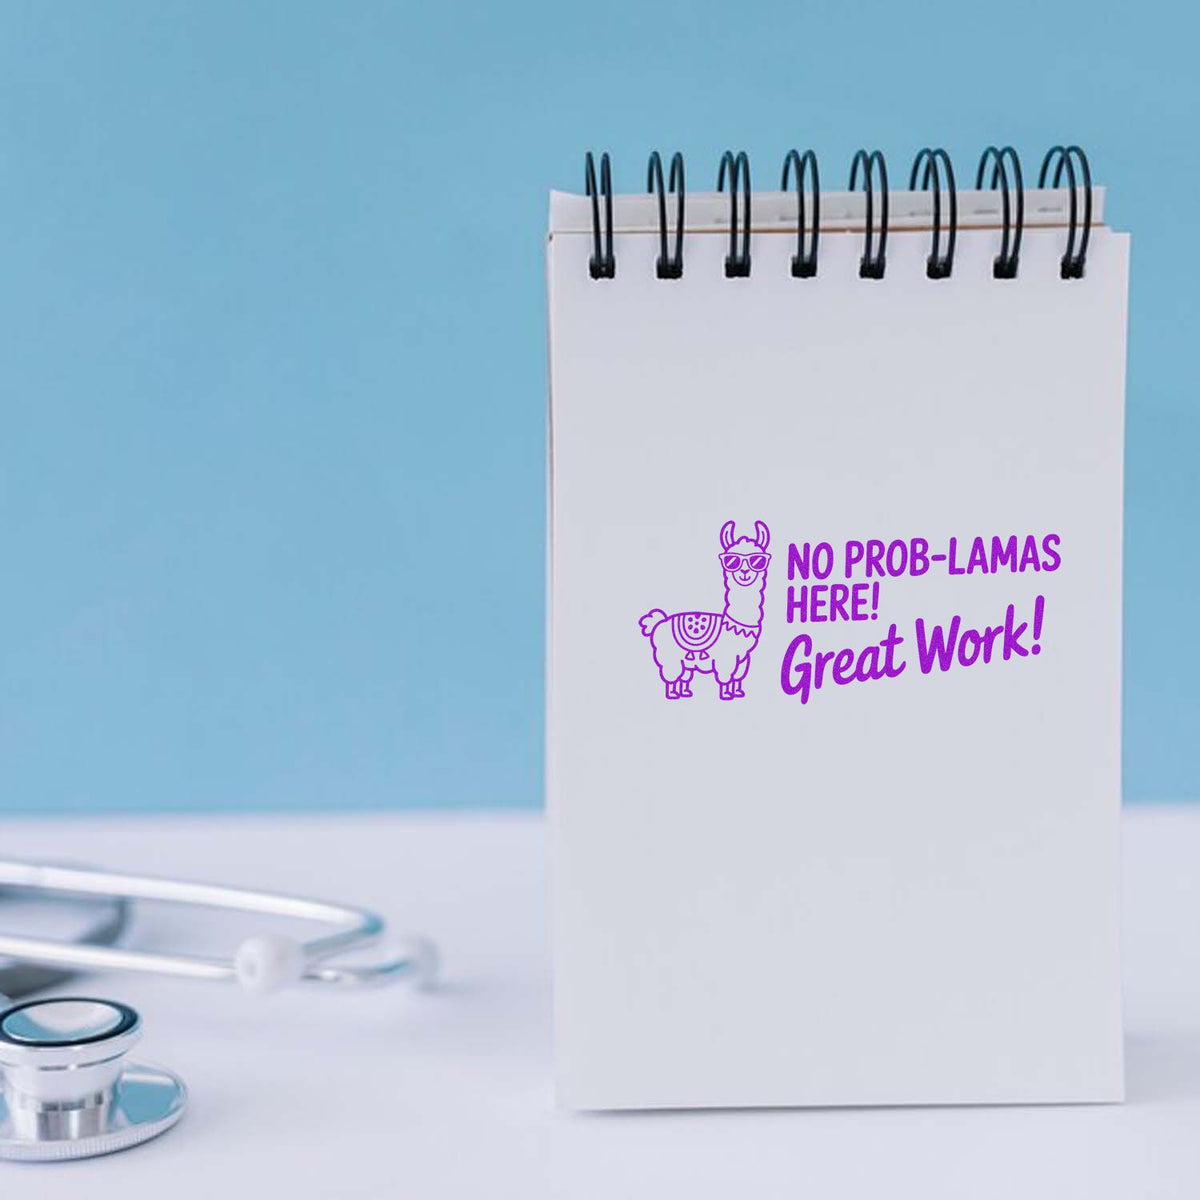 NO PROB-LAMAS
HERE!
Great Work!